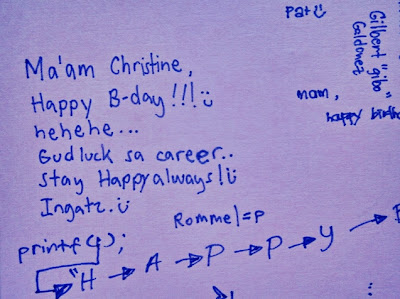 Ma'am Christine,
Happy B-day!!!
hehehe...
Gudluck sa career..
Stay Happy always!
Ingatz.
Rommel=p
printf();
"H → A → P → P → y →
Pat
Gilbert "gibo"
Galdonez
mam,
happy